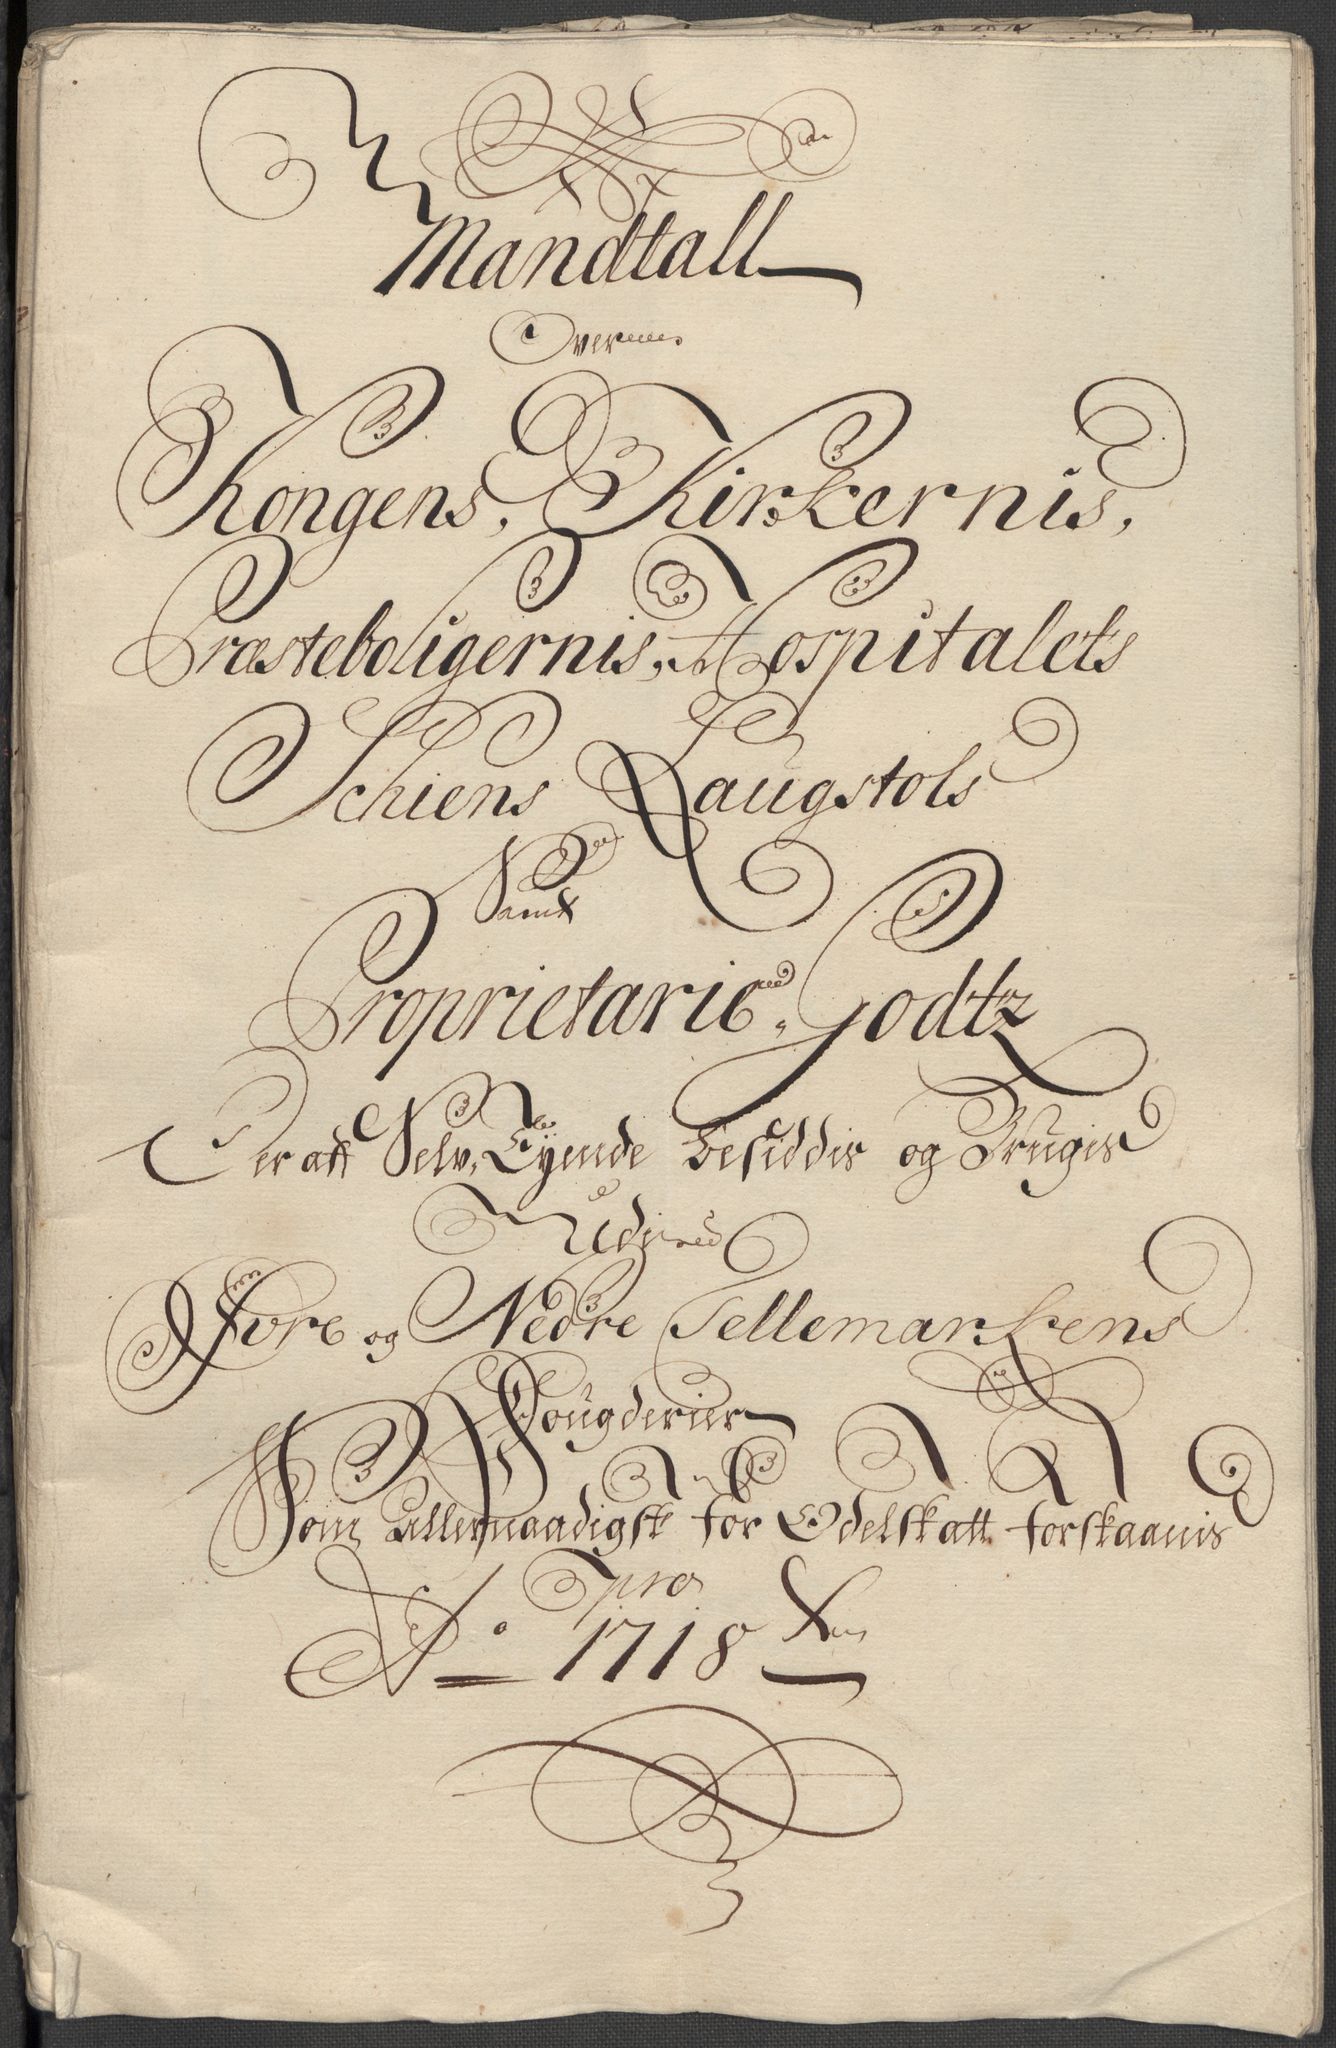 Mandtall
Over
Kongens, Kirkernis,
Præsteboligernis, Hospitalets
Schiens Laugstols
Samt
Proprietarie Godtz
Der att Selv Eyende besiddis og Brugis
Udi
Øvre og Nedre Tellemarkens
Fougderier
Som Allernaadigst for Odelskatt forskaanis
pro
A:o 1718